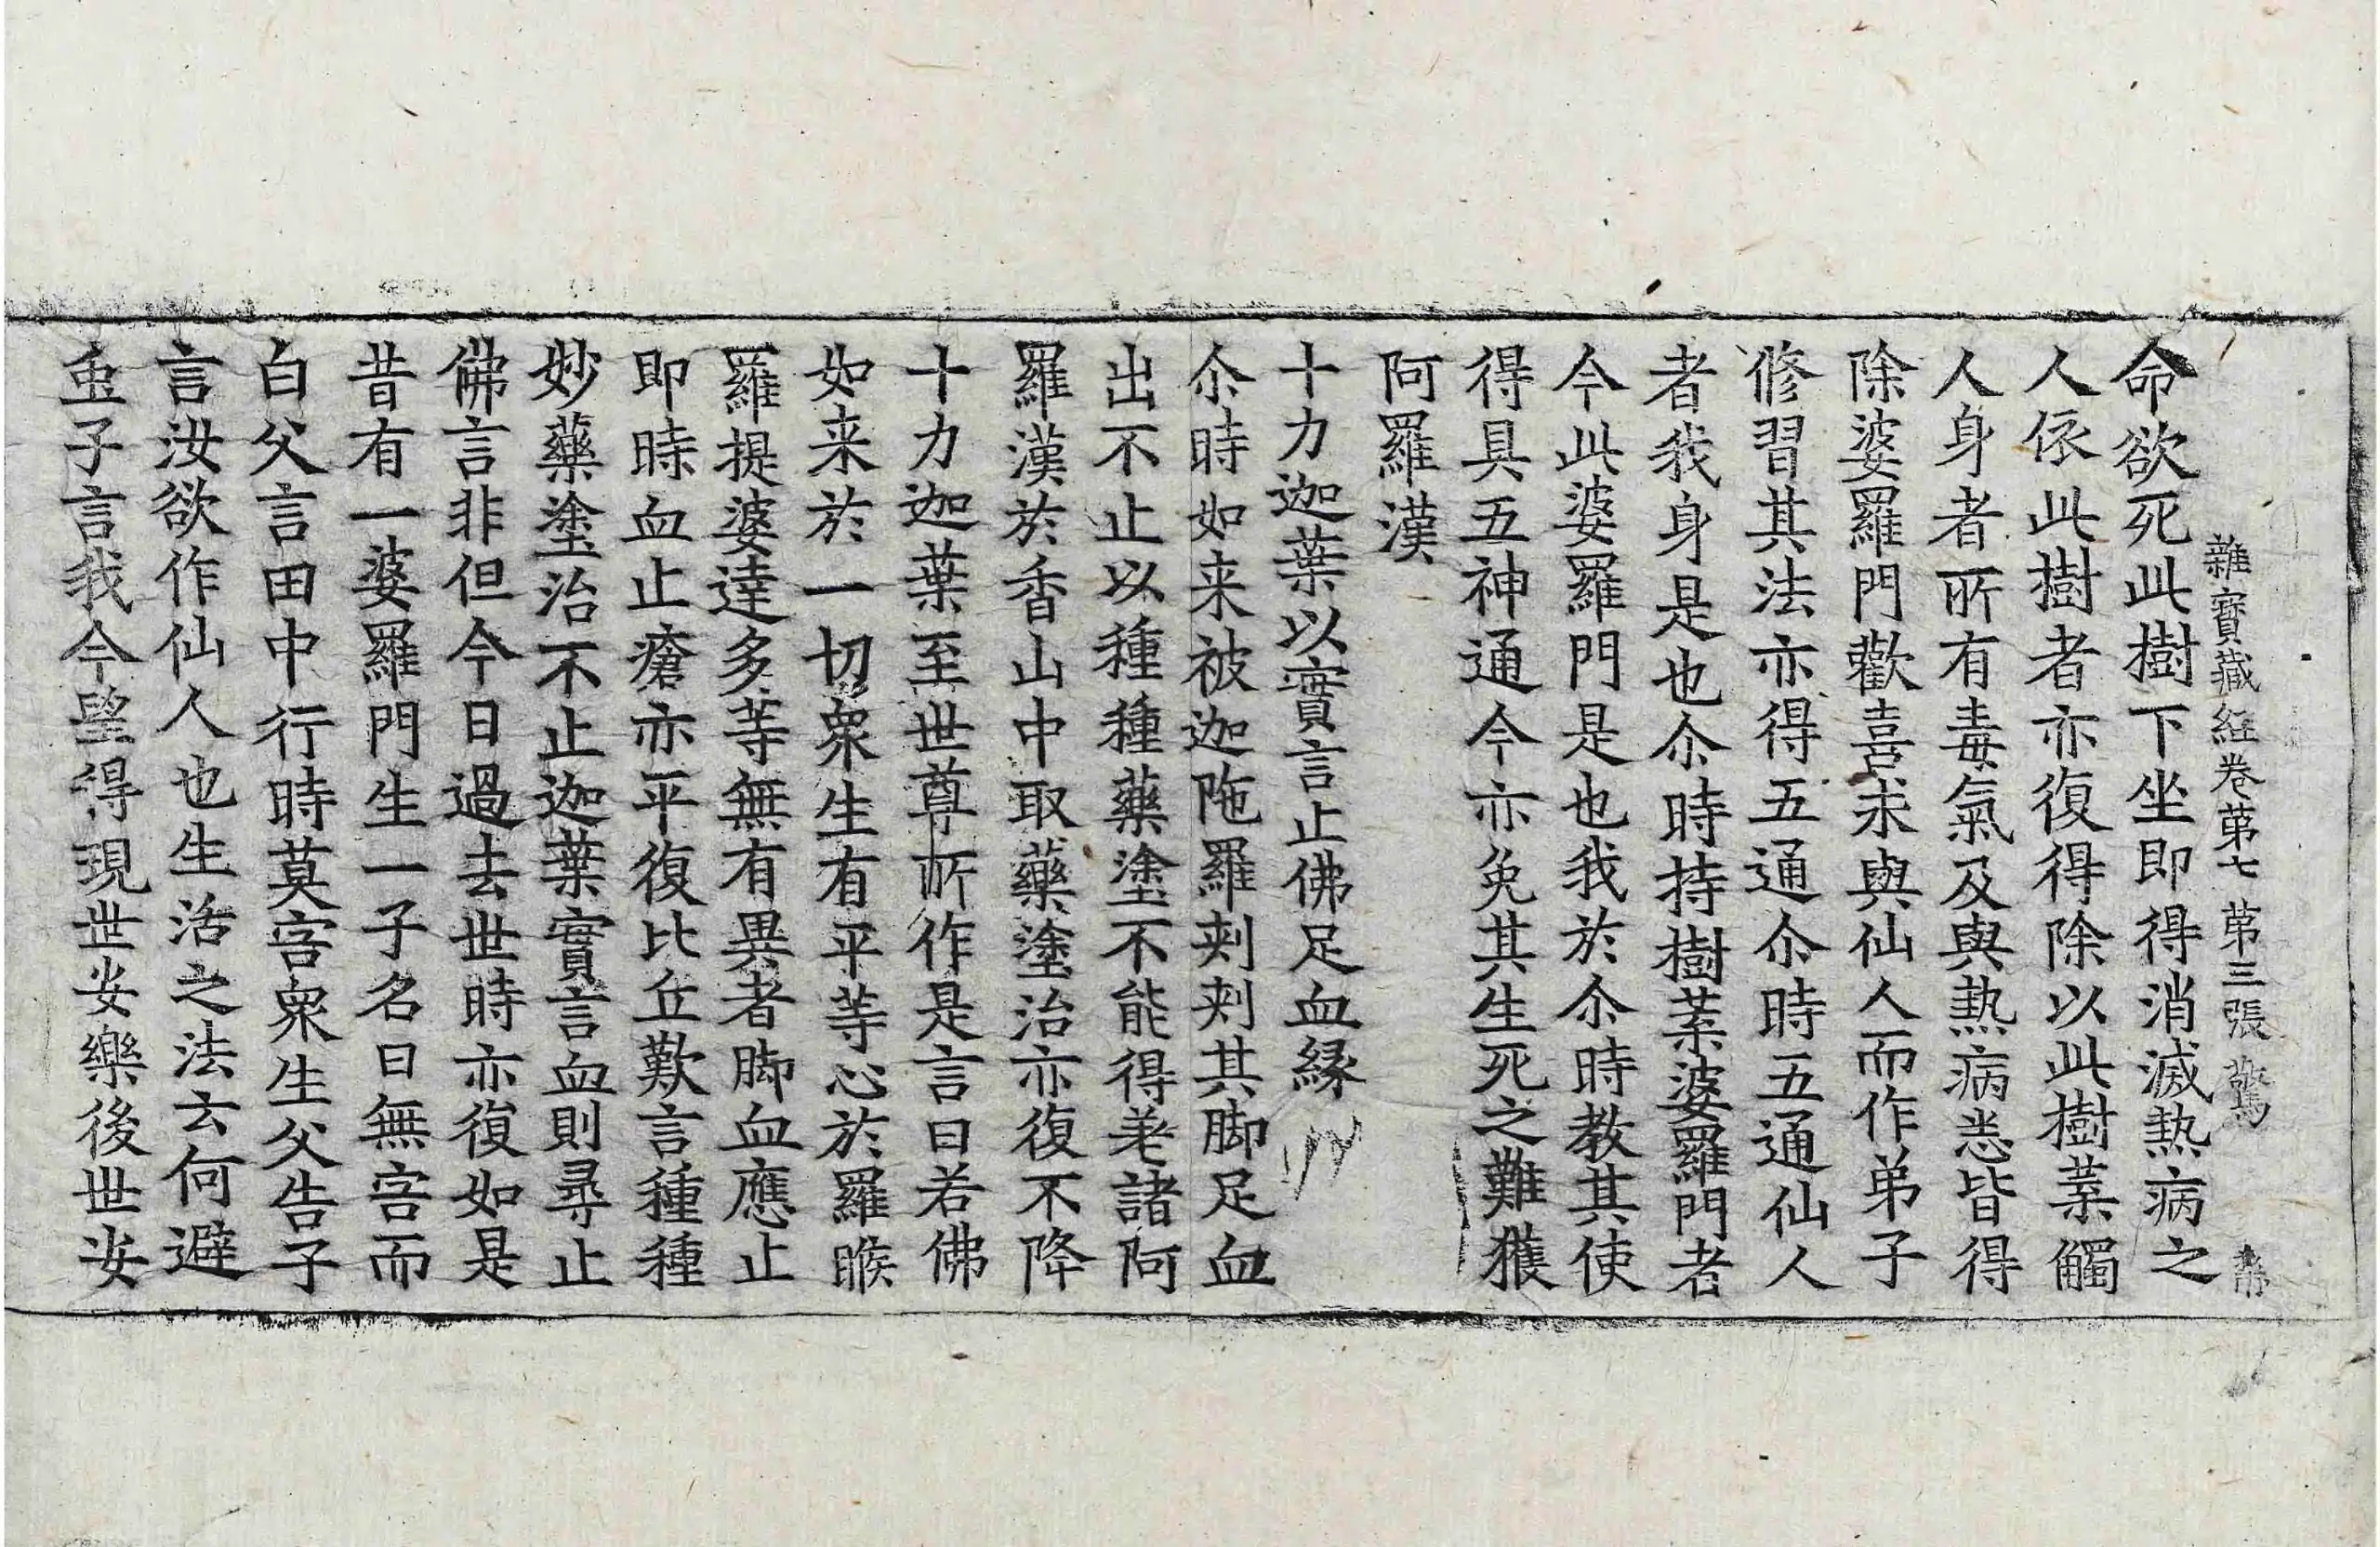 雜寶藏經卷第七 第三張 驚
命欲死此樹下坐即得消滅熱病之
人依此樹者亦復得除以此樹葉觸
人身者所有毒氣及與熱病悉皆得
除婆羅門歡喜求與仙人而作弟子
修習其法亦得五通尒時五通仙人
者我身是也尒時持樹葉婆羅門者
今此婆羅門是也我於尒時教其使
得具五神通今亦免其生死之難獲
阿羅漢
十力迦葉以實言止佛足血緣
尒時如来被迦陁羅刾刾其脚足血
出不止以種種藥塗不能得差諸阿
羅漢於香山中取藥塗治亦復不降
十力迦葉至世尊所作是言曰若佛
如来於一切衆生有平等心於羅睺
羅提婆達多等無有異者脚血應止
即時血止瘡亦平復比丘歎言種種
妙藥塗治不止迦葉實言血則尋止
佛言非但今日過去世時亦復如是
昔有一婆羅門生一子名曰無害而
白父言田中行時莫害衆生父告子
言汝欲作仙人也生活之法云何避
䖝子言我今望得現世安樂後世安